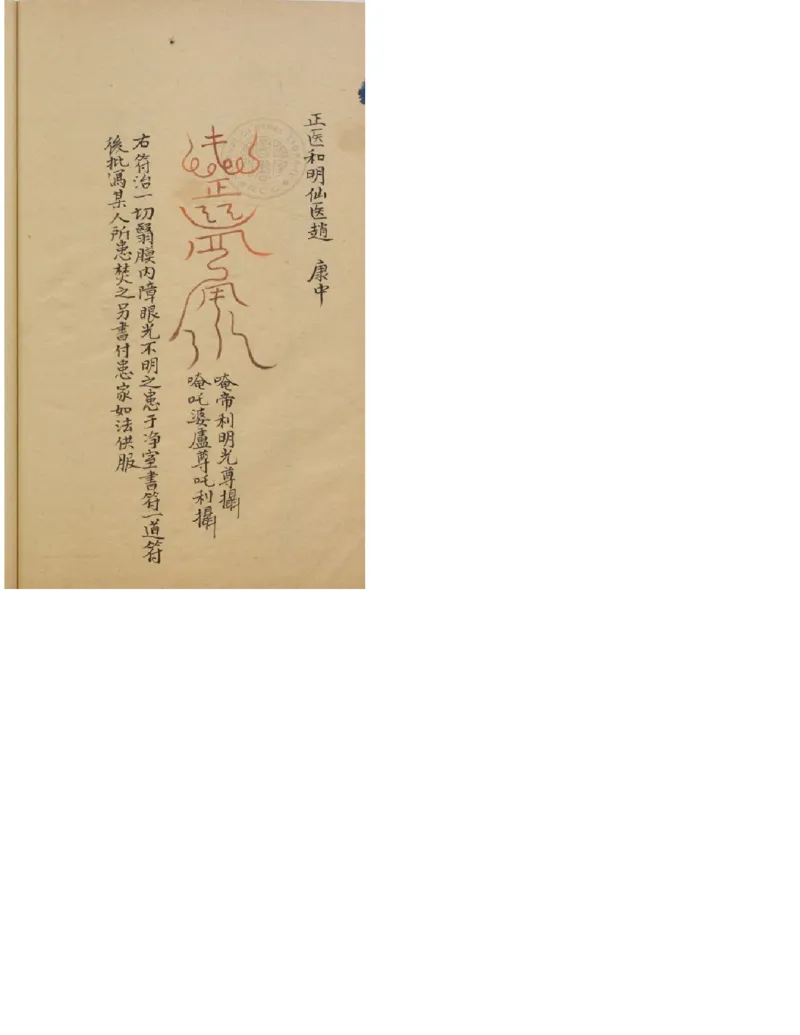 正医和明仙医趙　康中
唵帝利明光尊攝
唵吒婆盧尊吒利攝
右符治一切翳膜内障眼光不明之患于净室書符一道符
後批寫某人所患焚之另書付患家如法供服